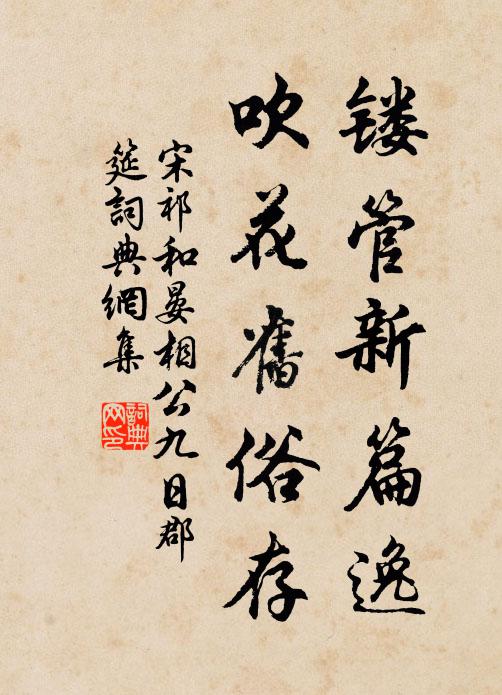 镂管新篇逸
吹花舊俗存
宋祁和晏相公九日郡
筵詞典網集
詞典网印